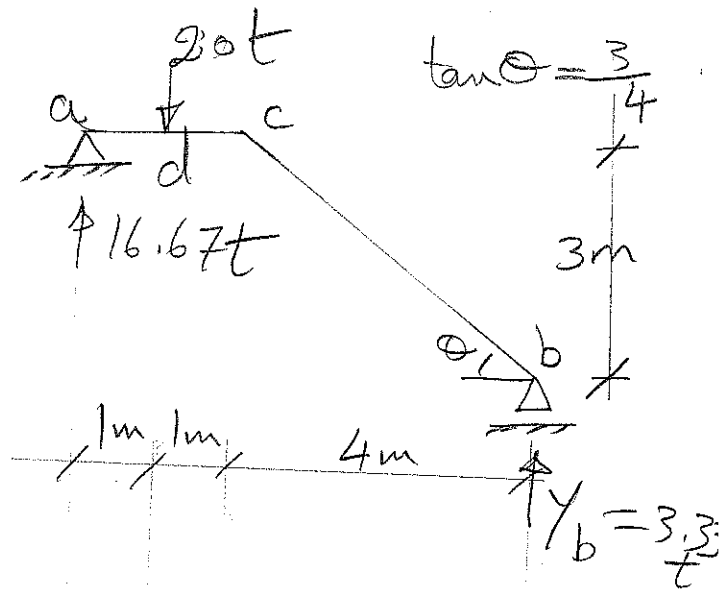 20t
tanθ = 3/4
a
c
d
16.67t
3m
θ
b
1m 1m
4m
Y_b = 3.33
t